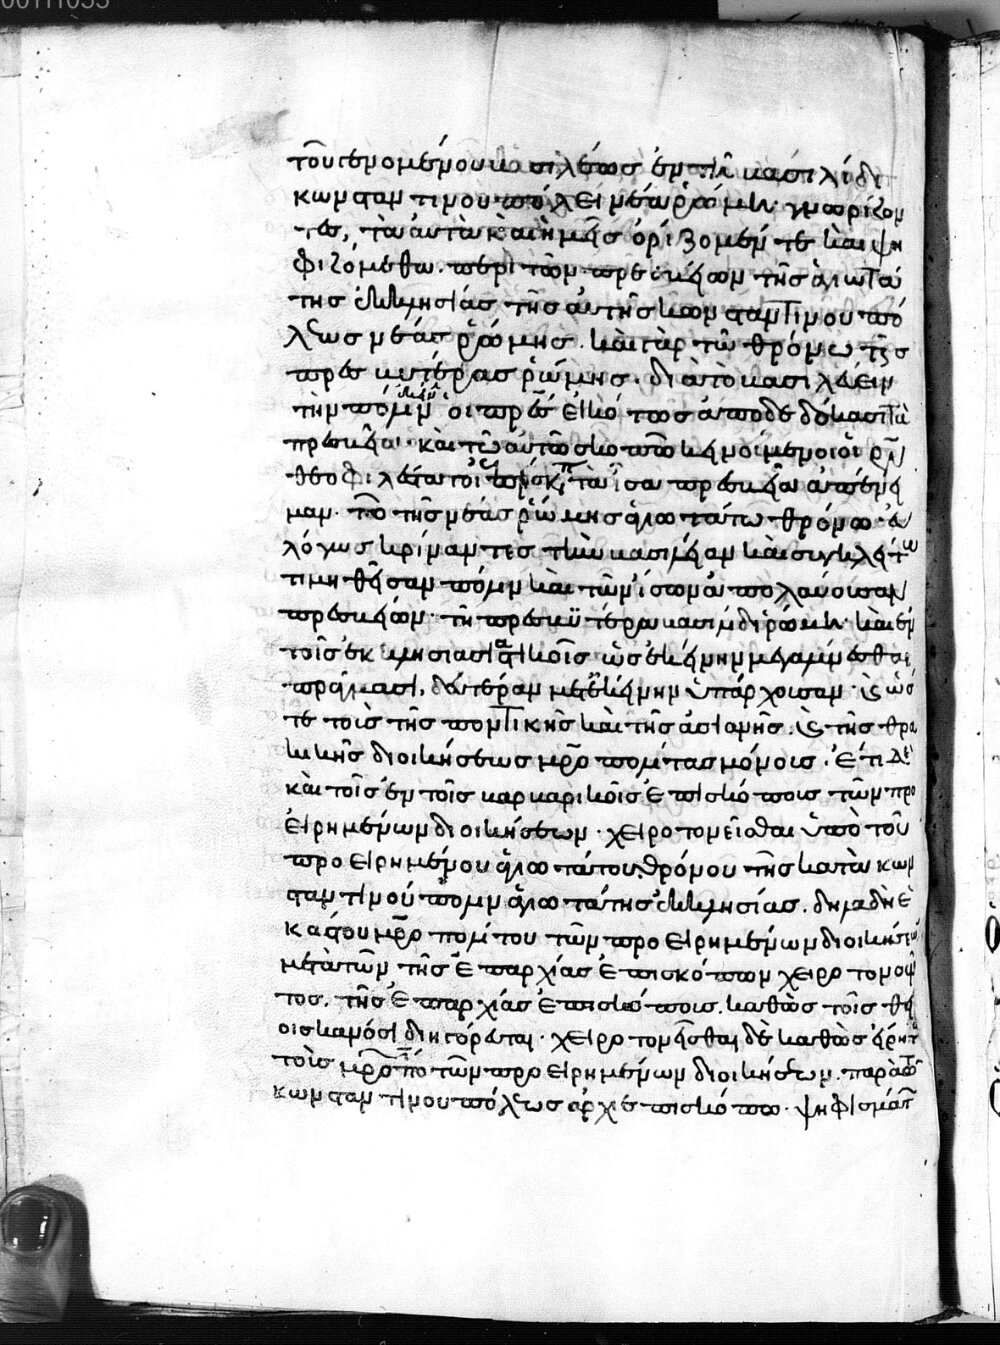 τοῦ γενομένου βασιλέως ἐν τῆ βασιλίδι
κωνσταντινουπόλει νέα ῥώμη. γνωρίζον
τες, τὰ αὐτὰ καὶ ἡμεῖς ὁρίζομέν τε καὶ ψη
φιζόμεθα. περὶ τῶν πρεσβείων τῆς ἁγιωτά
της ἐκκλησίας τῆς αὐτῆς κωνσταντινουπό
λεως νέας ῥώμης. καὶ γὰρ τῶ θρόνω τῆς
πρεσβυτέρας ῥώμης. διὰ τὸ βασιλεύειν
τὴν πόλιν ἐκείνην οἱ πρες εἰκότως ἀποδεδώκασι τὰ
πρεσβεῖα. καὶ τῶ αὐτῶ σκοπῶ κινοίμενοι οἱ ρν
θεοφιλέστατοι ἐπίσκοποι τὰ ἴσα πρεσβεῖα ἀπένει
μαν. τῶ τῆς νέας ῥώμης ἁγιωτάτω θρόνω. εὐ
λόγως κρίναντες τὴν βασιλείαν καὶ συγκλήτω
τιμηθεῖσαν πόλιν καὶ τῶν ἴσων ἀπολαύοισαν
πρεσβείων. τῆ πρεσβυτέρα βασιλίδι ῥώμη. καὶ ἐν
τοῖς ἐκκλησιαστικοῖς ὡς ἐκείνην μεγαλύνεσθαι
πράγμασι, δευτέραν μετ' ἐκείνην ὑπάρχοισαν. καὶ ὥσ
τε τοὺς τῆς ποντικῆς καὶ τῆς ἀσιανῆς. καὶ τῆς θρα
κικῆς διοικήσεως μροπολίτας μόνοις. ἔτι δὲ
καὶ τοῖς ἐν τοῖς βαρβαρικοῖς ἐπισκόποις τῶν προ
ειρημένων διοικήσεων. χειροτονεῖσθαι ὑπὸ τοῦ
προειρημένου ἁγιωτάτου θρόνου τῆς κατὰ κων
σταντινούπολιν ἁγιωτάτης ἐκκλησίας. δηλαδὴ ἑ
κάστου μροπολίτου τῶν προειρημένων διοικήσεων
μετὰ τῶν τῆς ἐπαρχίας ἐπισκόπων χειροτονοῦν
τος. τῆς ἐπαρχίας ἐπισκόποις. καθὼς τοῖς θεί
οις κανόσι διηγόρεται. χειροτονεῖσθαι δὲ καθὼς εἴρητ
τοῖς μροπολίτας τῶν προειρημένων διοικήσεων. παρὰ τοῦ
κωνσταντινουπόλεως ἀρχιεπισκόπου. ψηφισμάτων